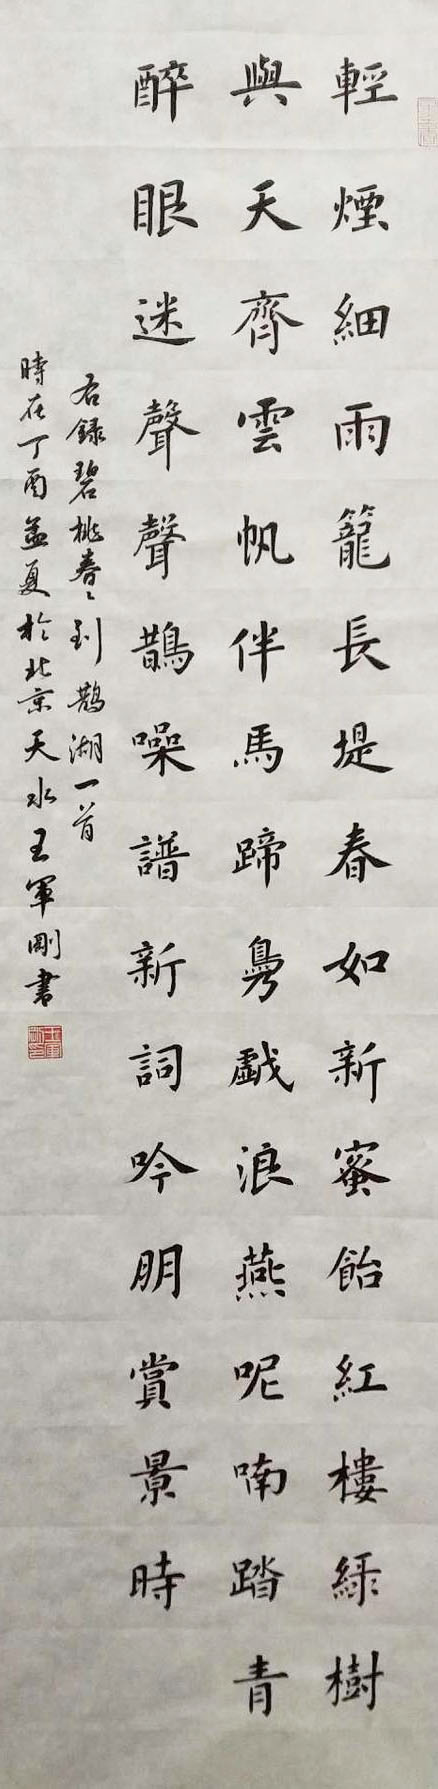 輕煙細雨籠長堤春如新蜜飴紅樓綠樹
與天齊雲帆伴馬蹄鳧戲浪燕呢喃踏青
醉眼迷聲聲鵲噪譜新詞吟朋賞景時
右錄碧桃春春到鵲湖一首
時在丁酉孟夏於北京天水王軍剛書